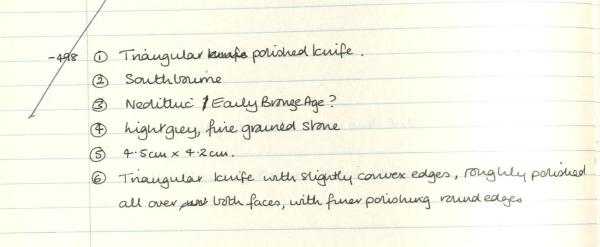 -498 ① Triangular knife polished knife.
② Southbourne
③ Neolithic / Early Bronze Age?
④ Light grey, fine grained stone
⑤ 4.5cm x 4.2cm.
⑥ Triangular knife with slightly convex edges, roughly polished
all over both faces, with finer polishing round edges